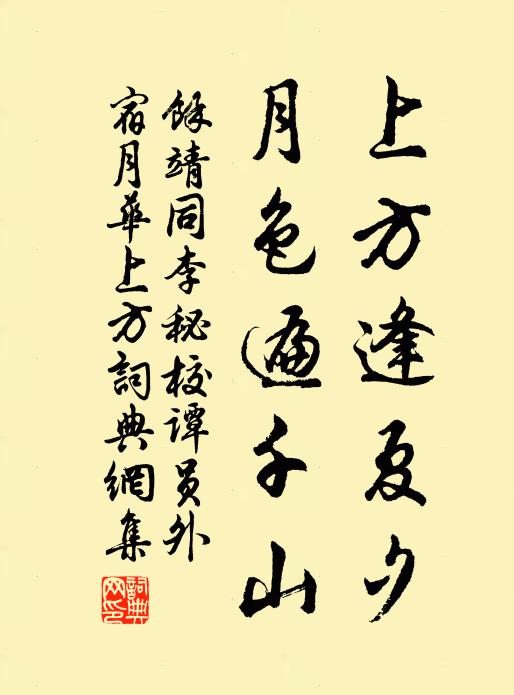 上方逢夏夕
月色遍千山
餘靖同李秘校谭員外
宿月華上方詞典網集
詞典网印